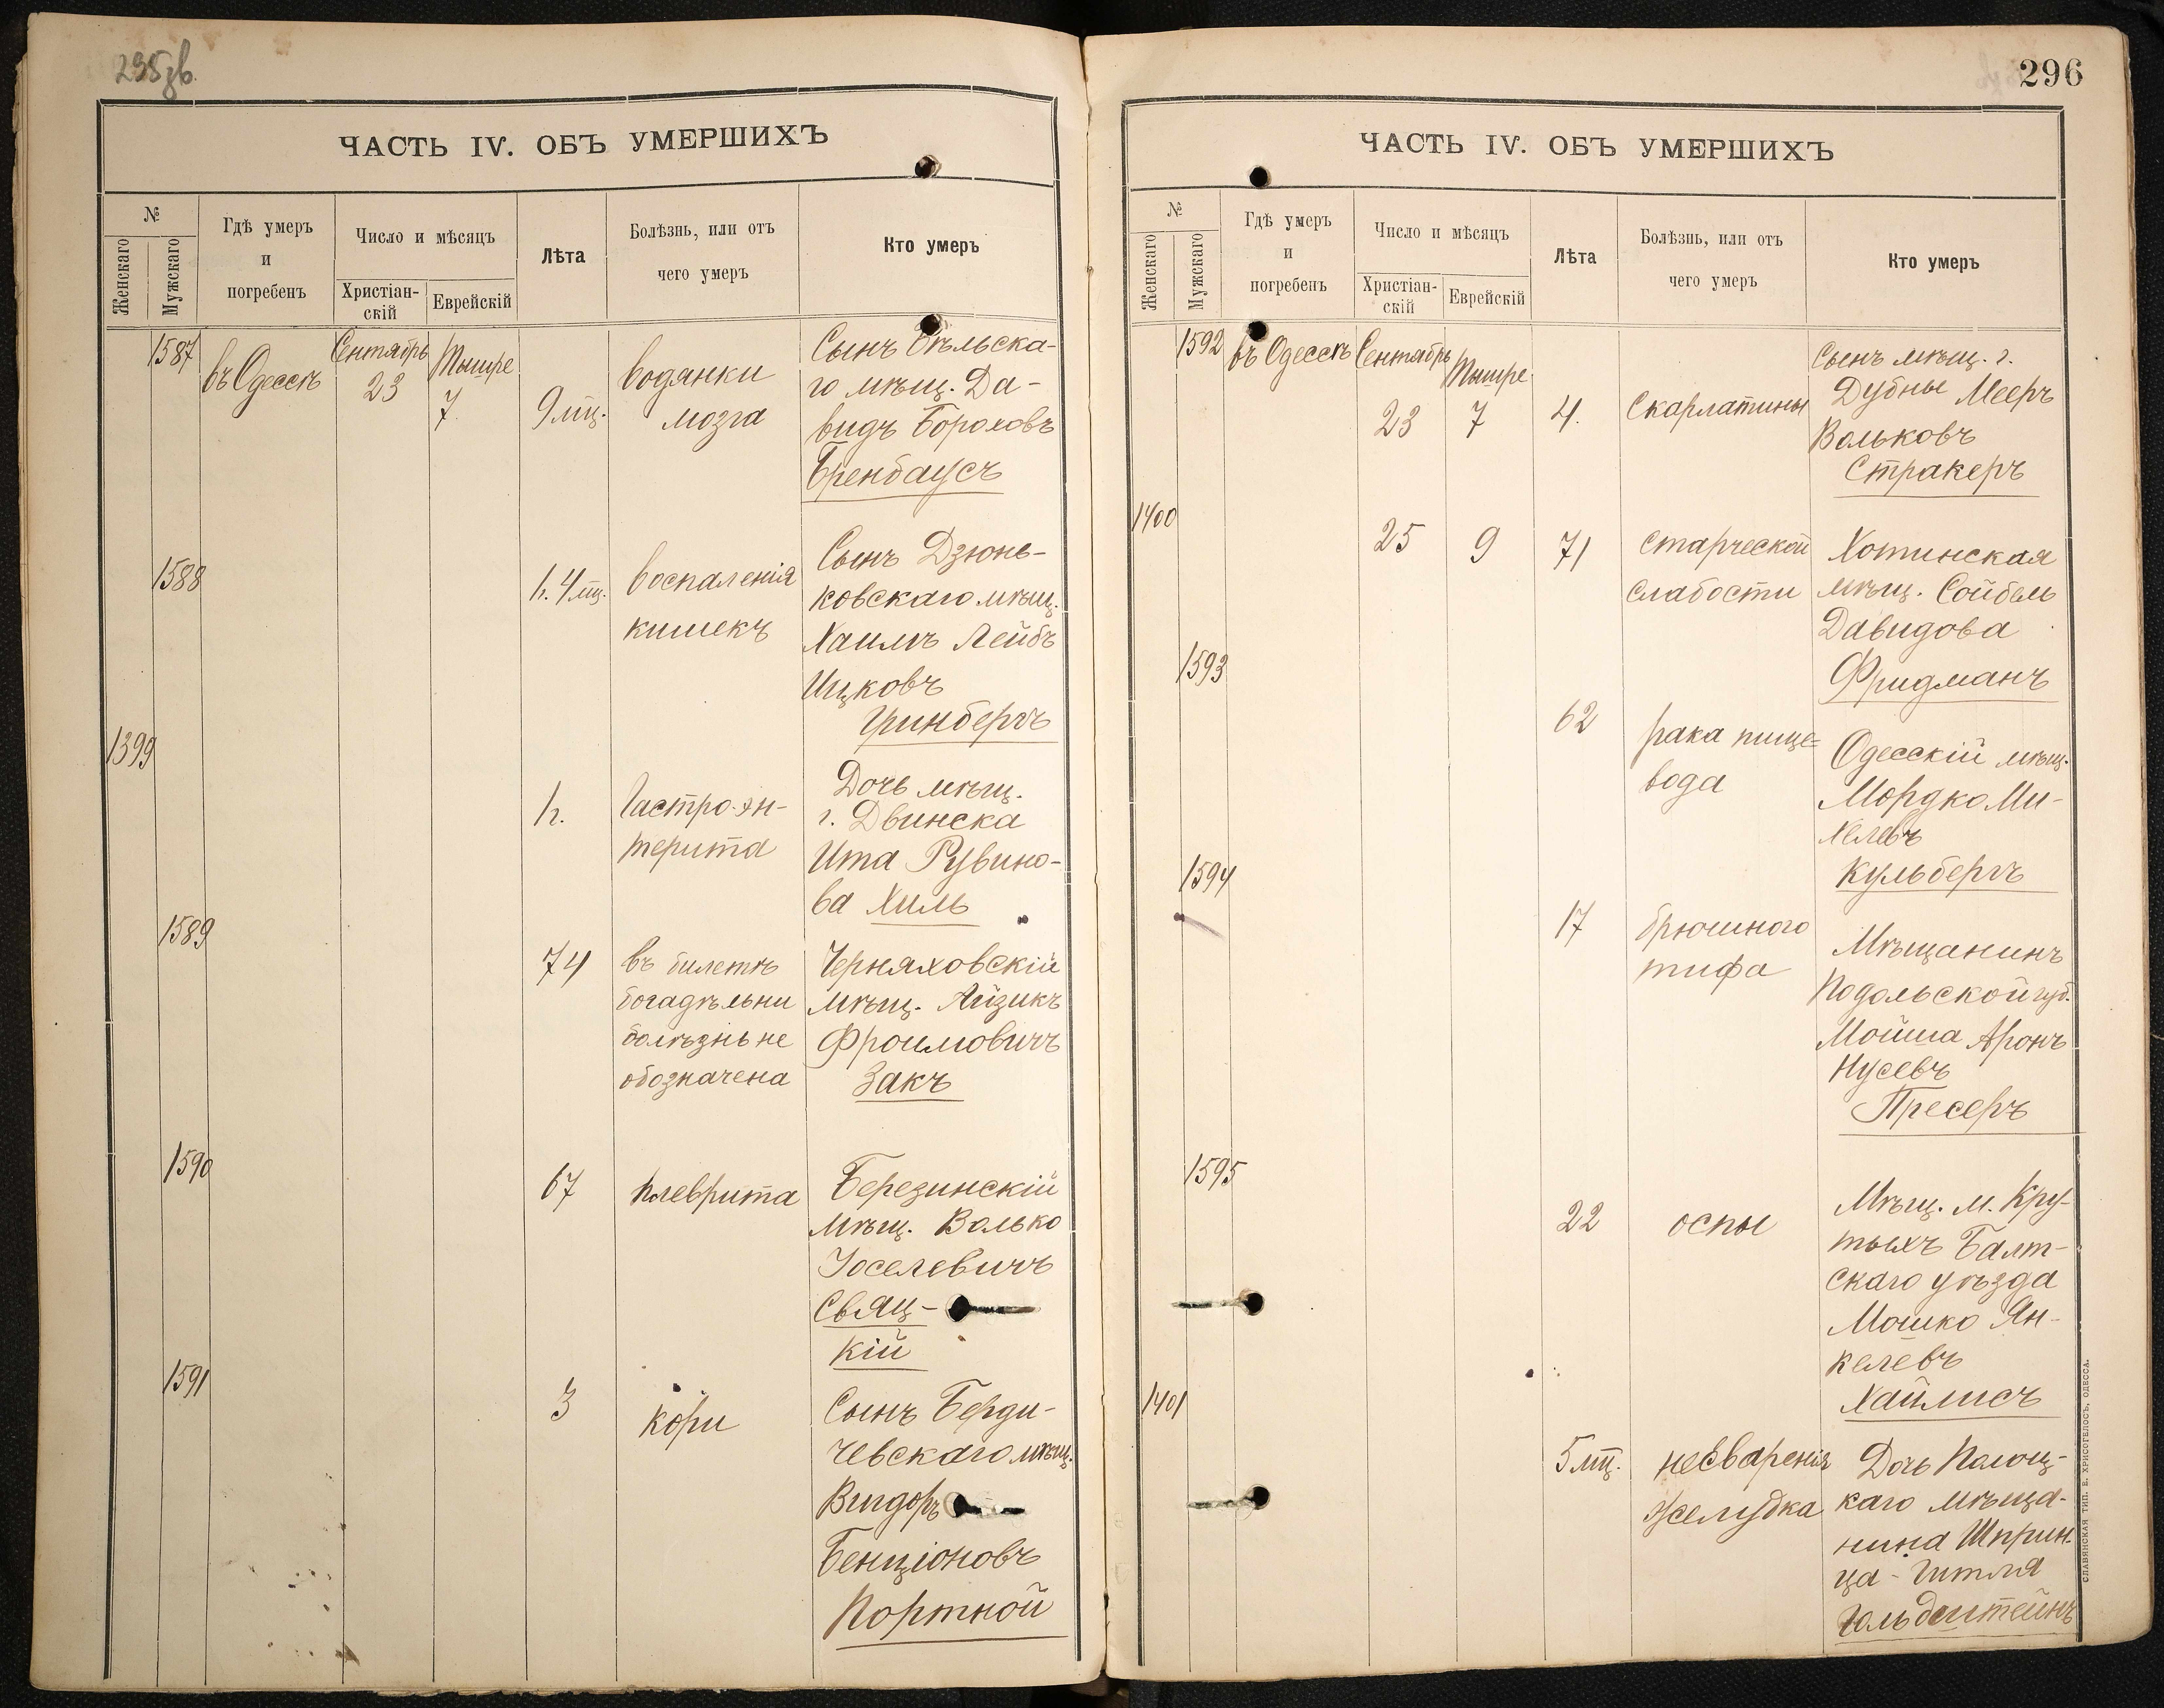 295зв.
ЧАСТЬ IV. ОБЪ УМЕРШИХЪ
№
Женскаго
Мужскаго
Гдѣ умеръ
и
погребенъ
Число и мѣсяцъ
Христіан-
скій
Еврейскій
Лѣта
Болѣзнь, или отъ
чего умеръ
Кто умеръ
1587
въ Одессѣ
Сентябрь
23
Тышре
7.
9 мц.
водянки
мозга
Сынъ Бѣльска-
го мѣщ. Да-
видъ Бороховъ
Бренбаусъ
1588
1. 4 мц.
воспаленія
кишекъ
Сынъ Дзюнь-
ковскаго мѣщ.
Хаимъ Лейбъ
Ицковъ
Гринбергъ
1399
1.
Гастро-эн-
терита
Дочь мѣщ.
г. Двинска
Ита Рувино-
ва Хиль
1589
74
въ билетѣ
богадѣльни
болѣзнь не
обозначена
Черняховскій
мѣщ. Айзикъ
Фроимовичъ
Закъ
1590
67
плеврита
Березинскій
мѣщ. Волько
Іоселевичъ
Свяц-
кій
1591
3
кори
Сынъ Берди-
чевскаго мѣщ.
Вигдоръ
Бенціоновъ
Портной
296
ЧАСТЬ IV. ОБЪ УМЕРШИХЪ
№
Женскаго
Мужскаго
Гдѣ умеръ
и
погребенъ
Число и мѣсяцъ
Христіан-
скій
Еврейскій
Лѣта
Болѣзнь, или отъ
чего умеръ
Кто умеръ
1592
въ Одессѣ
Сентябрь
23
Тышре
7
4.
Скарлатины
Сынъ мѣщ. г.
Дубны Мееръ
Вольковъ
Стракеръ
1400
25
9
71
старческой
слабости
Хотинская
мѣщ. Сойбель
Давидова
Фридманъ
1593
62
рака пище=
вода
Одесскій мѣщ.
Мордко Ми-
хелевъ
Кульбергъ
1594
17
брюшного
тифа
Мѣщанинъ
Подольской губ.
Мойша Аронъ
Нусевъ
Пресеръ
1595
22
оспы
Мѣщ. м. Кру-
тыхъ Балт-
скаго уѣзда
Мошко Ян-
келевъ
Хайлисъ
1401
5 мц.
несваренія
желудка
Дочь Полоц-
каго мѣща-
нина Шприн-
ца-Гитля
Гольдштейнъ
СЛАВЯНСКАЯ ТИП. Е. ХРИСОГЕЛОСЪ, ОДЕССА.